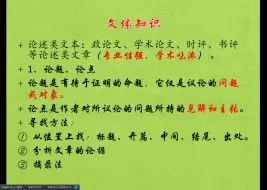 文体知识
+ 论述类文本：政论文、学术论文、时评、书评
等论述类文章（专业性强、学术味浓）。
+ 1、论题、论点
+ 论题是有待于证明的命题，它仅是议论的问题
或对象。
+ 论点是作者对所议论的问题所持的见解和主张。
+ 寻找方法：
① 从位置上找：标题、开篇、中间、结尾、出处。
② 分析文章的论据
③ 摘录法